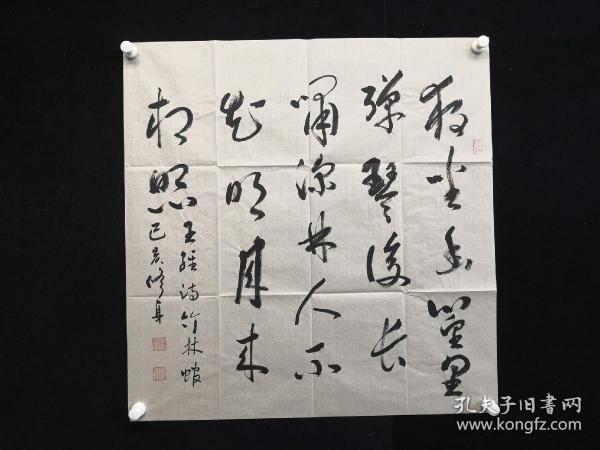 独坐幽篁里
弹琴復长
嘯深林人不
知明月来
相照
王维诗竹林馆
己亥修身
孔夫子旧書网
www.kongfz.com